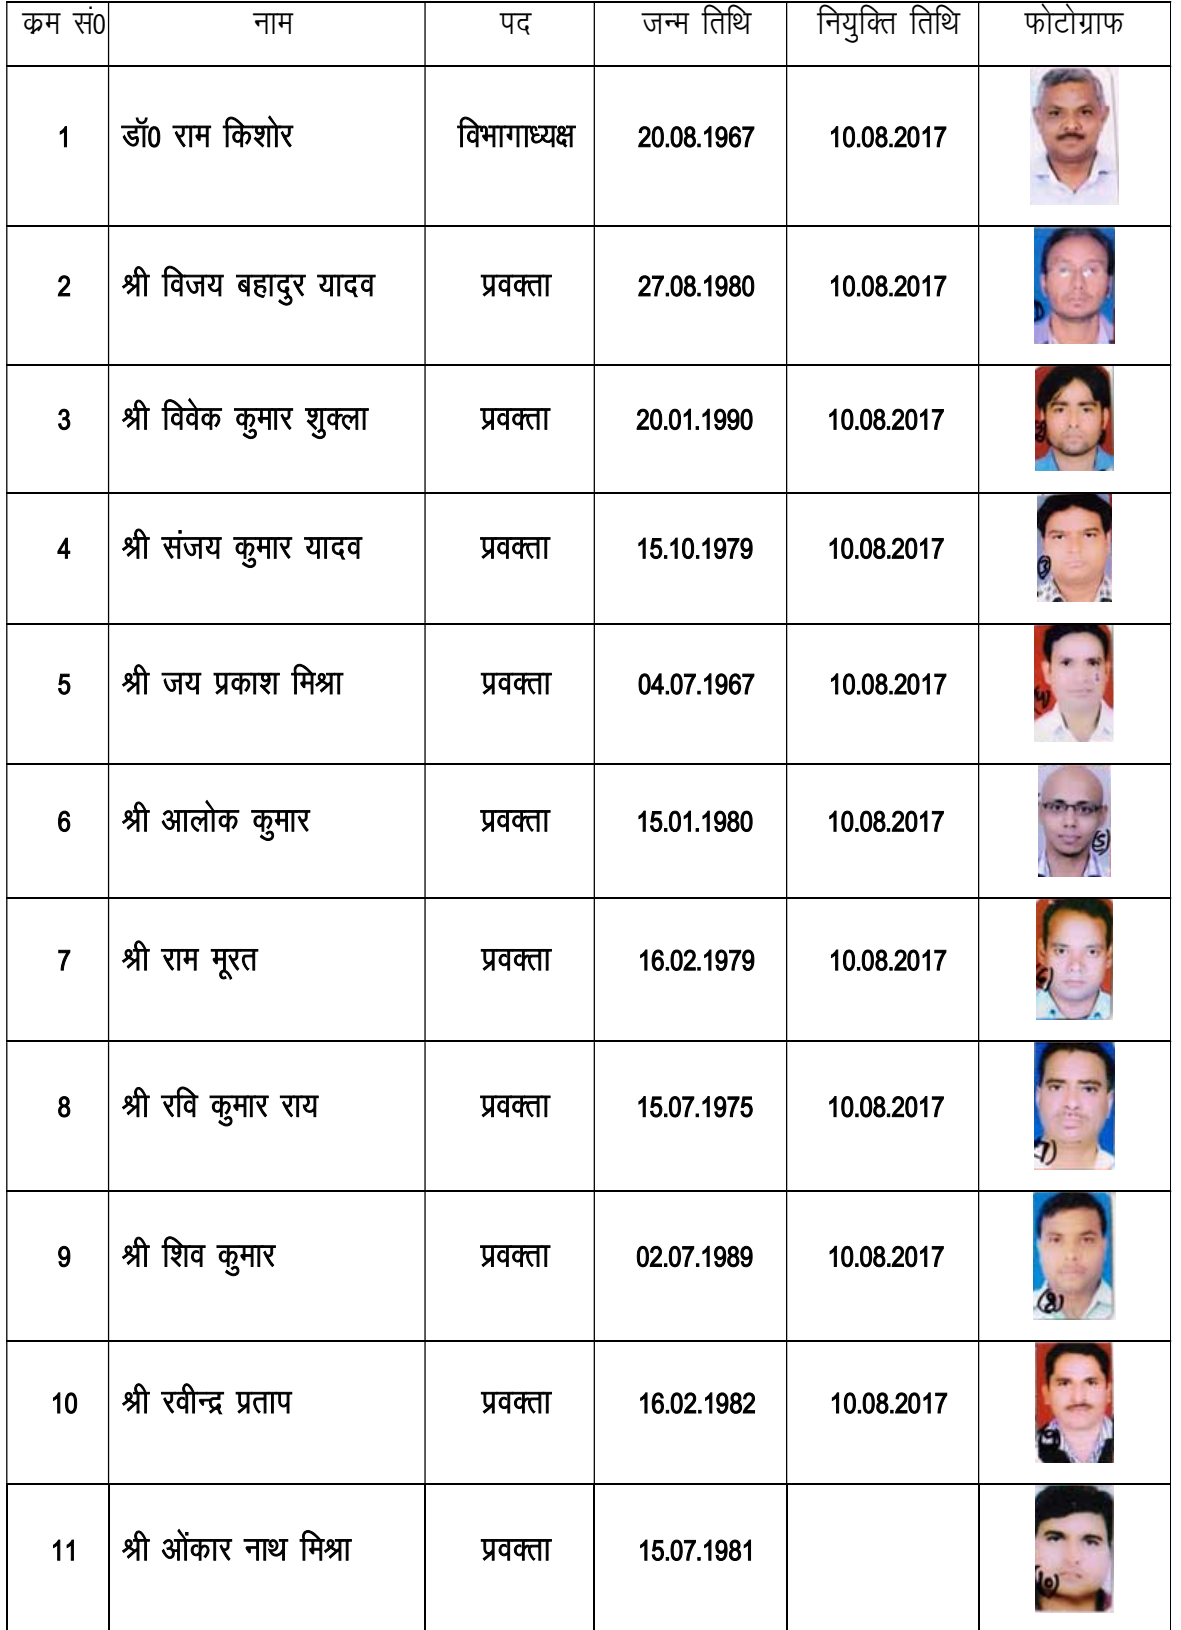 क्रम सं0 नाम पद जन्म तिथि नियुक्ति तिथि फोटोग्राफ
1 डॉ0 राम किशोर विभागाध्यक्ष 20.08.1967 10.08.2017
2 श्री विजय बहादुर यादव प्रवक्ता 27.08.1980 10.08.2017
3 श्री विवेक कुमार शुक्ला प्रवक्ता 20.01.1990 10.08.2017
4 श्री संजय कुमार यादव प्रवक्ता 15.10.1979 10.08.2017
5 श्री जय प्रकाश मिश्रा प्रवक्ता 04.07.1967 10.08.2017
6 श्री आलोक कुमार प्रवक्ता 15.01.1980 10.08.2017
(5)
7 श्री राम मूरत प्रवक्ता 16.02.1979 10.08.2017
8 श्री रवि कुमार राय प्रवक्ता 15.07.1975 10.08.2017
7)
9 श्री शिव कुमार प्रवक्ता 02.07.1989 10.08.2017
(8)
10 श्री रवीन्द्र प्रताप प्रवक्ता 16.02.1982 10.08.2017
11 श्री ओंकार नाथ मिश्रा प्रवक्ता 15.07.1981